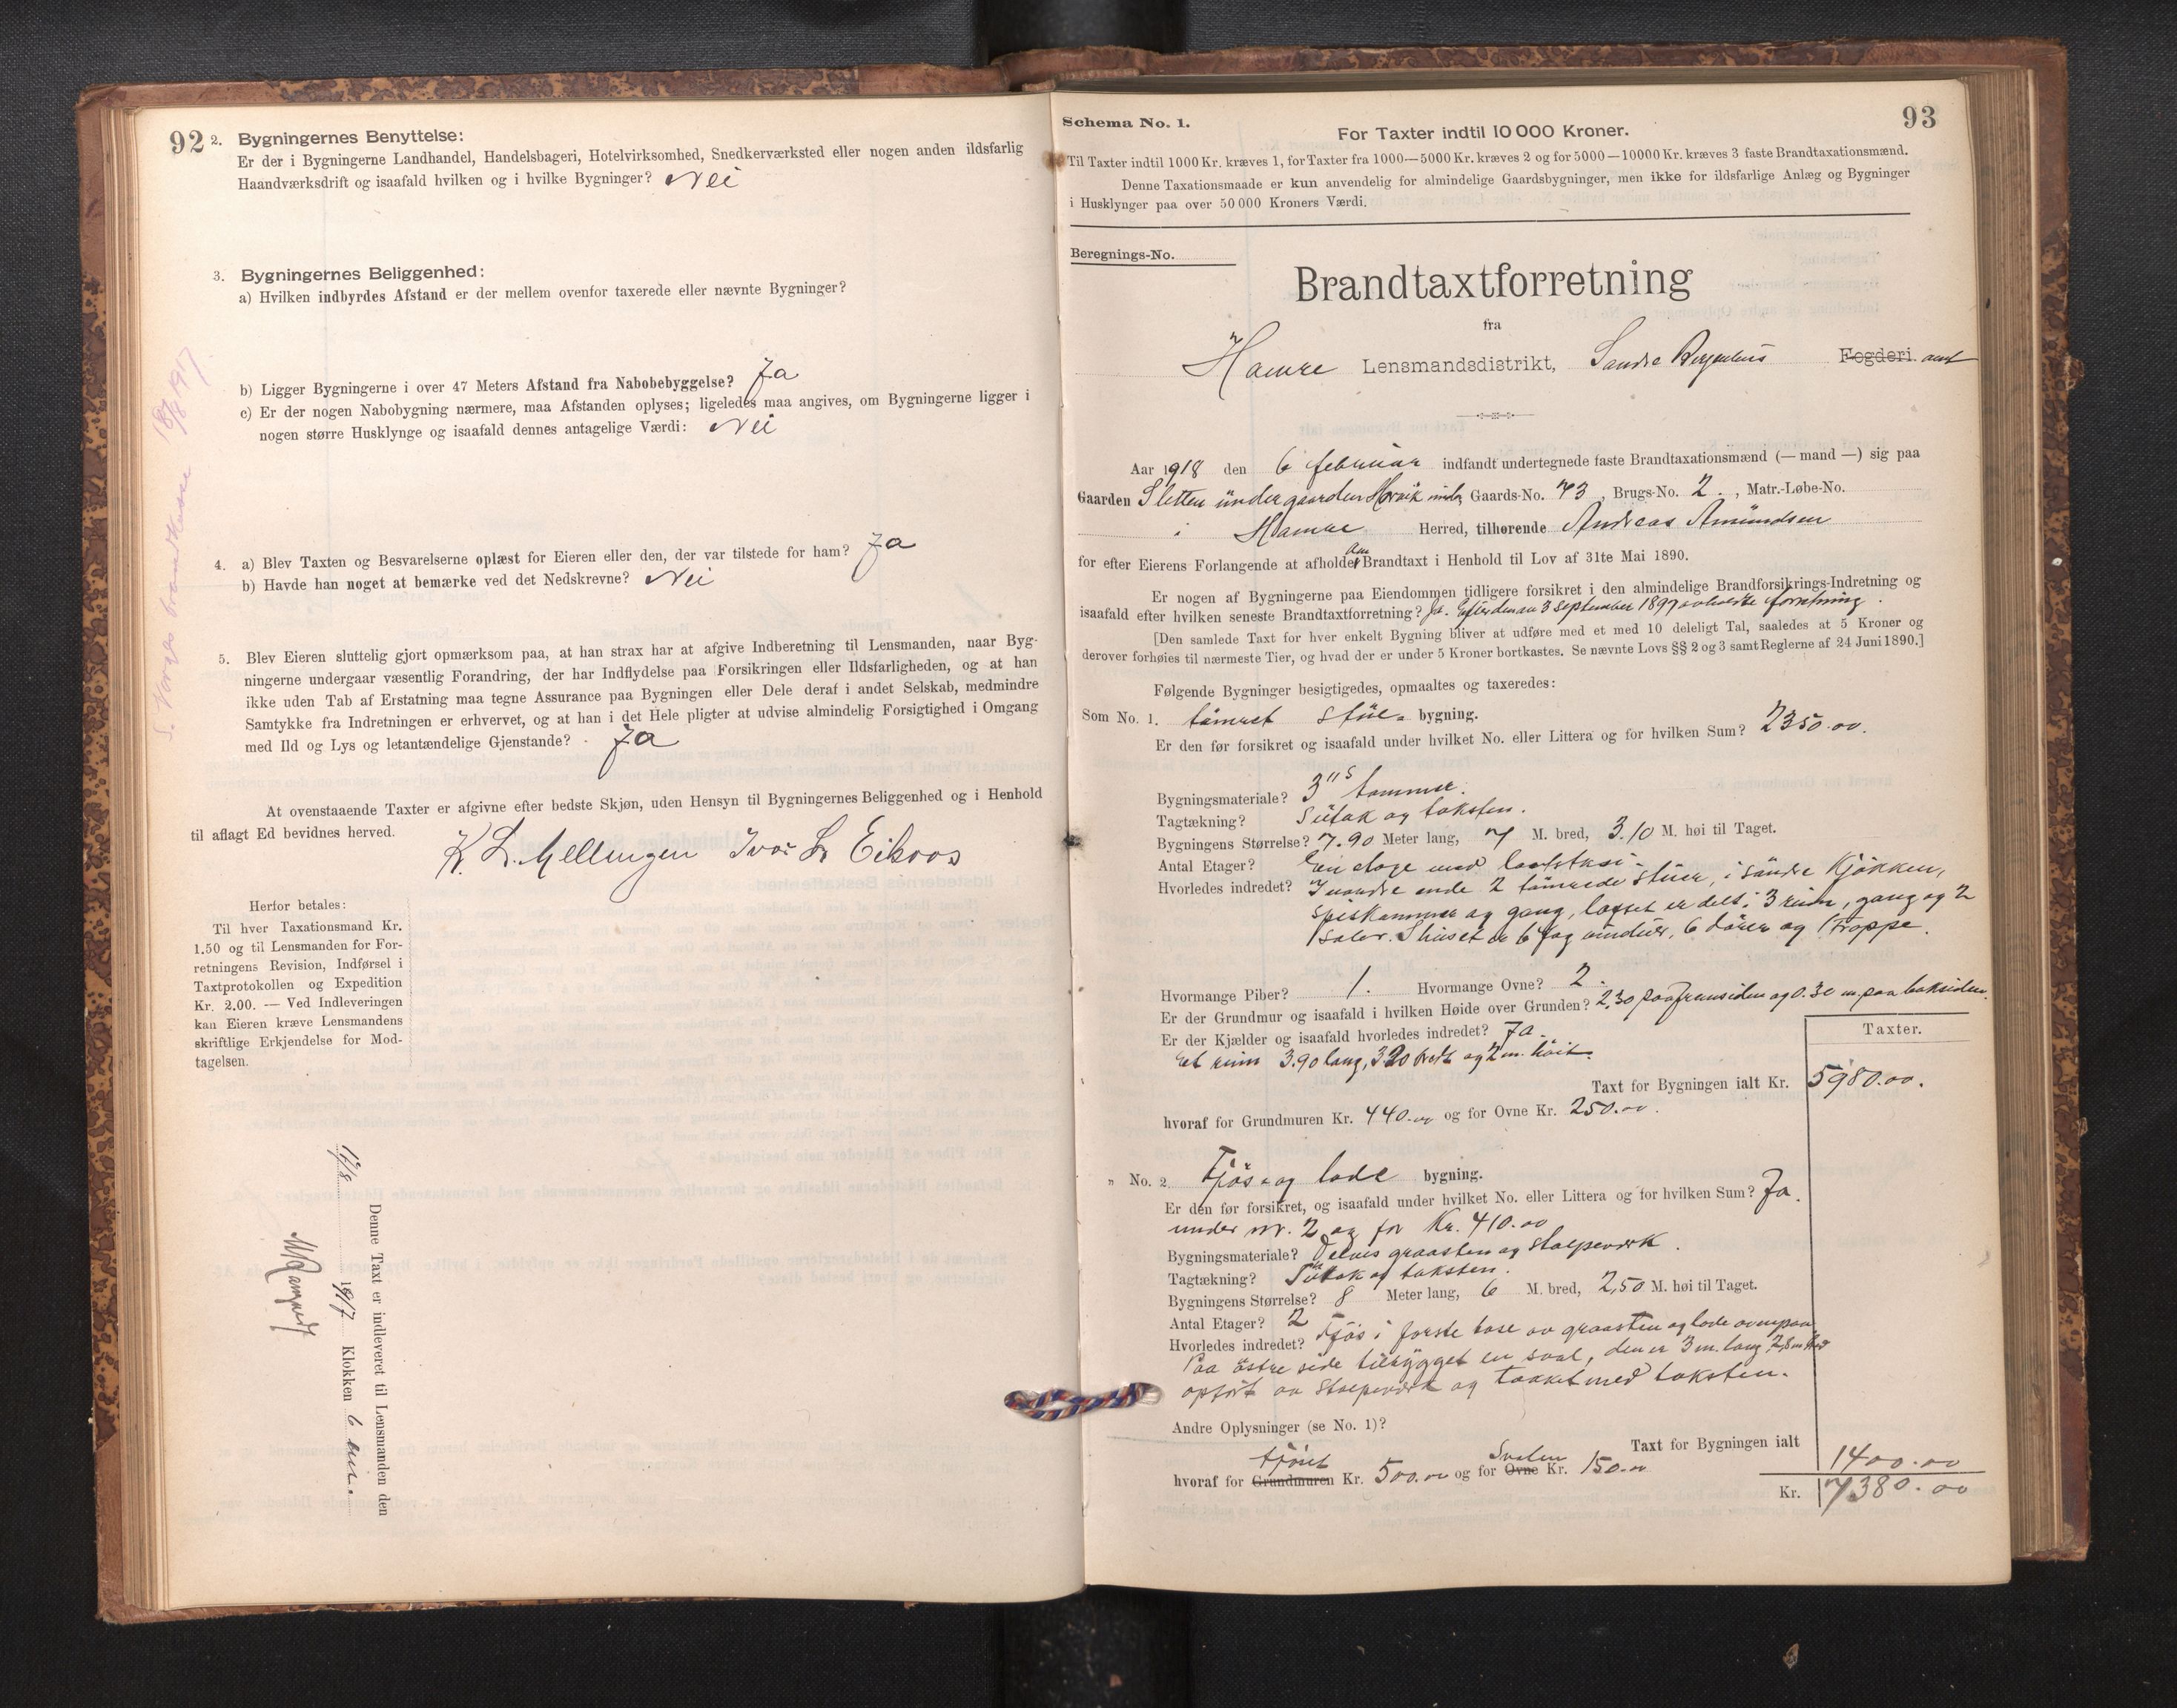 92
2. Bygningernes Benyttelse:
Er der i Bygningerne Landhandel, Handelsbageri, Hotelvirksomhed, Snedkerværksted eller nogen anden ildsfarlig
Haandværksdrift og isaafald hvilken og i hvilke Bygninger? Nei
3. Bygningernes Beliggenhed:
a) Hvilken indbyrdes Afstand er der mellem ovenfor taxerede eller nævnte Bygninger?
b) Ligger Bygningerne i over 47 Meters Afstand fra Nabobebyggelse? Ja
c) Er der nogen Nabobygning nærmere, maa Afstanden oplyses; ligeledes maa angives, om Bygningerne ligger i
nogen større Husklynge og isaafald dennes antagelige Værdi: Nei
4. a) Blev Taxten og Besvarelserne oplæst for Eieren eller den, der var tilstede for ham? Ja
b) Havde han noget at bemærke ved det Nedskrevne? Nei
5. Blev Eieren sluttelig gjort opmærksom paa, at han strax har at afgive Indberetning til Lensmanden, naar Byg-
ningerne undergaar væsentlig Forandring, der har Indflydelse paa Forsikringen eller Ildsfarligheden, og at han
ikke uden Tab af Erstatning maa tegne Assurance paa Bygningen eller Dele deraf i andet Selskab, medmindre
Samtykke fra Indretningen er erhvervet, og at han i det Hele pligter at udvise almindelig Forsigtighed i Omgang
med Ild og Lys og letantændelige Gjenstande? Ja
At ovenstaaende Taxter er afgivne efter bedste Skjøn, uden Hensyn til Bygningernes Beliggenhed og i Henhold
til aflagt Ed bevidnes herved.
K. L. Mellingen Ivar L. Eikaas
Herfor betales:
Til hver Taxationsmand Kr.
1.50 og til Lensmanden for For-
retningens Revision, Indførsel i
Taxtprotokollen og Expedition
Kr. 2.00. — Ved Indleveringen
kan Eieren kræve Lensmandens
skriftlige Erkjendelse for Mod-
tagelsen.
Denne Taxt er indleveret til Lensmanden den
17/8 1917 Klokken 6 em.
S. Horges brandkasse 18/8 1917
93
Schema No. 1.
For Taxter indtil 10 000 Kroner.
Til Taxter indtil 1000 Kr. kræves 1, for Taxter fra 1000—5000 Kr. kræves 2 og for 5000—10000 Kr. kræves 3 faste Brandtaxationsmænd.
Denne Taxationsmaade er kun anvendelig for almindelige Gaardsbygninger, men ikke for ildsfarlige Anlæg og Bygninger
i Husklynger paa over 50 000 Kroners Værdi.
Beregnings-No.
Brandtaxtforretning
fra
Hamre Lensmandsdistrikt, Søndre Bergenhus Fogderi amt
Aar 1918 den 6 februar indfandt undertegnede faste Brandtaxationsmænd (— mand —) sig paa
Gaarden Sletten under gaarden Horvik indr, Gaards-No. 73, Brugs-No. 2., Matr.-Løbe-No.
i Hamre Herred, tilhørende Andreas Amundsen
for efter Eierens Forlangende at afholde Om Brandtaxt i Henhold til Lov af 31te Mai 1890.
Er nogen af Bygningerne paa Eiendommen tidligere forsikret i den almindelige Brandforsikrings-Indretning og
isaafald efter hvilken seneste Brandtaxtforretning? Ja. Efter den an 3 september 1897 avholdte forretning.
[Den samlede Taxt for hver enkelt Bygning bliver at udføre med et med 10 deleligt Tal, saaledes at 5 Kroner og
derover forhøies til nærmeste Tier, og hvad der er under 5 Kroner bortkastes. Se nævnte Lovs §§ 2 og 3 samt Reglerne af 24 Juni 1890.]
Følgende Bygninger besigtigedes, opmaaltes og taxeredes:
Som No. 1. tømret stue- bygning.
Er den før forsikret og isaafald under hvilket No. eller Littera og for hvilken Sum? 2350.00.
Bygningsmateriale? 3"s tømmer.
Tagtækning? Sutak og taksten.
Bygningens Størrelse? 7.90 Meter lang, 7 M. bred, 3.10 M. høi til Taget.
Antal Etager? En etage med loftstasi.
Hvorledes indredet? I nordre ende 2 tømrede stuer, i søndre Kjøkken,
spiskammer og gang, loftet er delt i 3 rum, gang og 2
saler. I huset er 6 fag vinduer, 6 dører og 1 Trappe.
Hvormange Piber? 1. Hvormange Ovne? 2.
Er der Grundmur og isaafald i hvilken Høide over Grunden? 2,30 paa framsiden og 0.30 m. paa baksiden.
Er der Kjælder og isaafald hvorledes indredet? Ja.
Et rum 3.90 lang, 320 bredt og 2 m. høit.
Taxter.
Taxt for Bygningen ialt Kr. 5980.00.
hvoraf for Grundmuren Kr. 440.00 og for Ovne Kr. 250.00.
" No. 2. Fjøs- og lade bygning.
Er den før forsikret, og isaafald under hvilket No. eller Littera og for hvilken Sum? Ja.
under nr. 2 og for Kr. 410.00
Bygningsmateriale? Delvis graasten og stolpeverk.
Tagtækning? Sutak og taksten.
Bygningens Størrelse? 8 Meter lang, 6 M. bred, 2,50 M. høi til Taget.
Antal Etager? 2
Hvorledes indredet? Fjøs i første tase av graasten og lade ovenpaa
Paa østre side tilbygget en sval, den er 3 m. lang 2,8 m bred
opført av stolpeverk og tækket med taksten.
Andre Oplysninger (se No. 1)?
Taxt for Bygningen ialt 1400.00
hvoraf for Grundmuren fjøset Kr. 500.00 og for Ovne Svalen Kr. 150.00
Kr. 7380.00